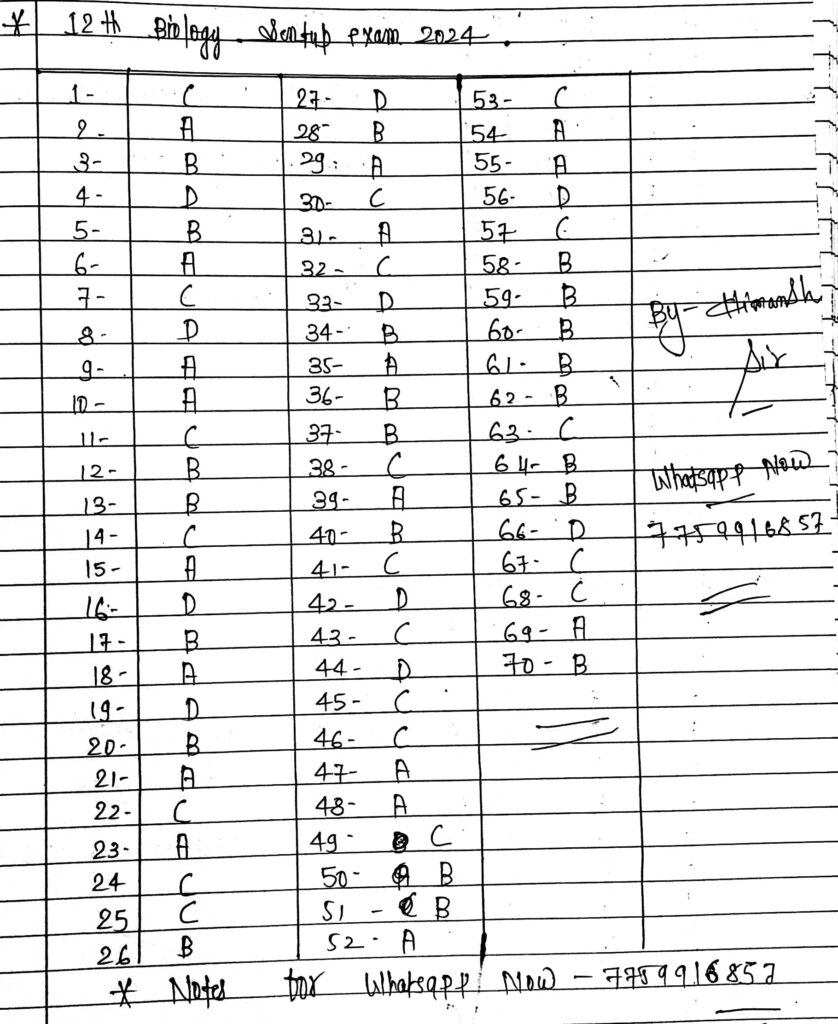 * 12th Biology Sentup exam 2024.
1- C 27- D 53- C
2- A 28- B 54- A
3- B 29- A 55- A
4- D 30- C 56- D
5- B 31- A 57- C
6- A 32- C 58- B
7- C 33- D 59- B
8- D 34- B 60- B
9- A 35- A 61- B
10- A 36- B 62- B
11- C 37- B 63- C
12- B 38- C 64- B
13- B 39- A 65- B
14- C 40- B 66- D
15- A 41- C 67- C
16- D 42- D 68- C
17- B 43- C 69- A
18- A 44- D 70- B
19- D 45- C
20- B 46- C
21- A 47- A
22- C 48- A
23- A 49- C
24 C 50- B
25 C 51- B
26 B 52- A
By- Himansh
Sir
Whatsapp Now
7759916857
* Notes for Whatsapp Now - 7759916857